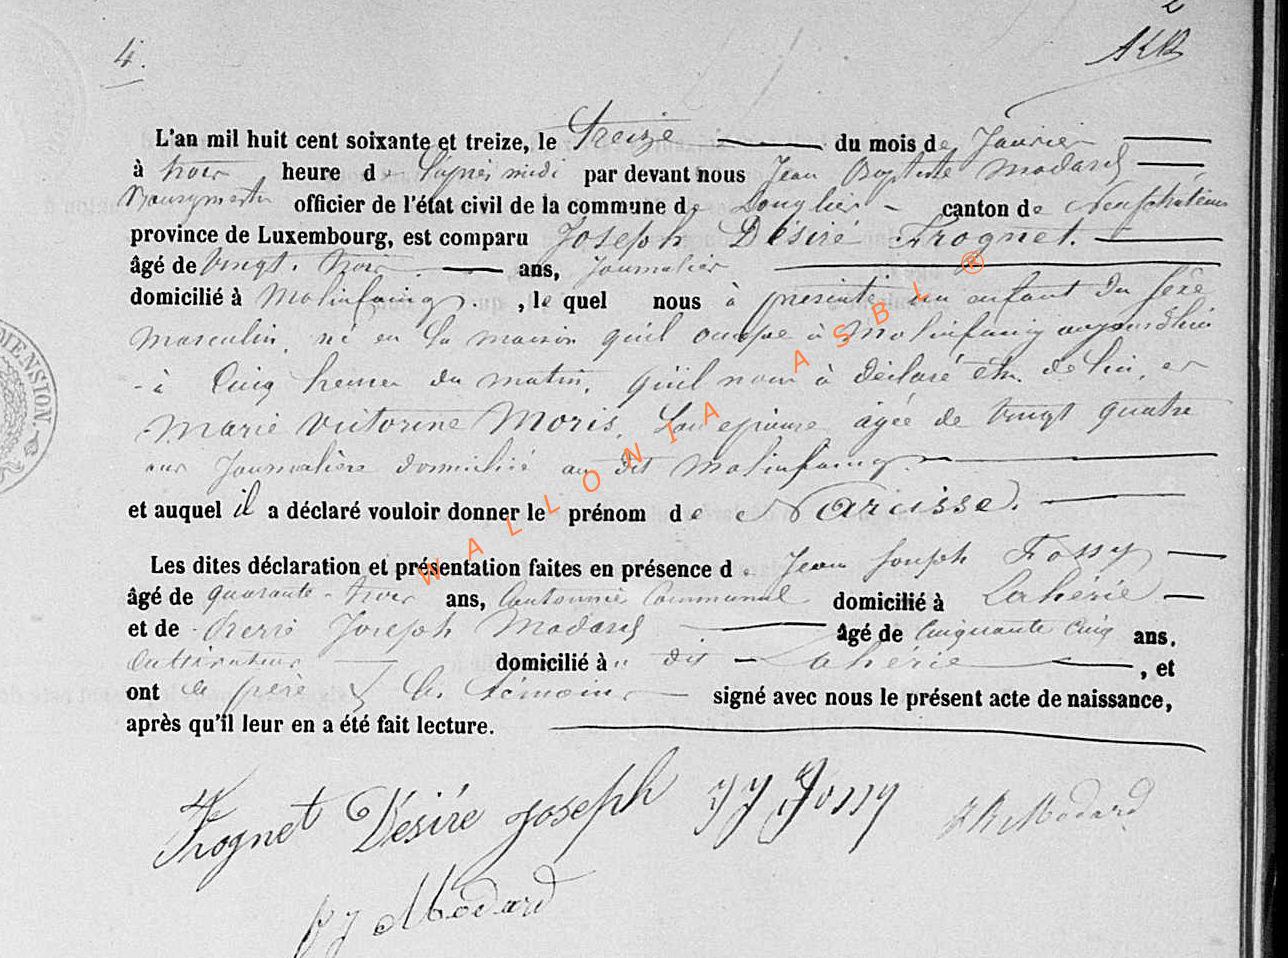 2
4.
L'an mil huit cent soixante et treize, le Treize du mois de Janvier
à trois heure de l'après midi par devant nous Jean Baptiste Modard
Bourgmestre officier de l'état civil de la commune de Longlier canton de Neufchâteau
province de Luxembourg, est comparu Joseph Désiré Frognet.
âgé de vingt. trois ans, Journalier
domicilié à Molinfaing. , le quel nous à présenté un enfant du sexe
masculin, né en la maison qu'il occupe à Molinfaing aujourdhui
à Cinq heures du matin, qu'il nous à déclaré être de lui, et
Marie Victorine Moris, son épouse âgée de vingt quatre
ans Journalière domicilié au dit Molinfaing.
et auquel il a déclaré vouloir donner le prénom de Narcisse.
Les dites déclaration et présentation faites en présence d. Jean Joseph Fossy
âgé de quarante-trois ans, Cantonnié Communal domicilié à Lahérie
et de Pierre Joseph Modard âgé de Cinquante Cinq ans.
Cultivateur domicilié à u dit Lahérie , et
ont le père & les témoins signé avec nous le présent acte de naissance,
après qu'il leur en a été fait lecture.
Frognet Désiré Joseph JJ Fossy JB Modard
PJ Modard
WALLONIA ASBL ®
MENSION.